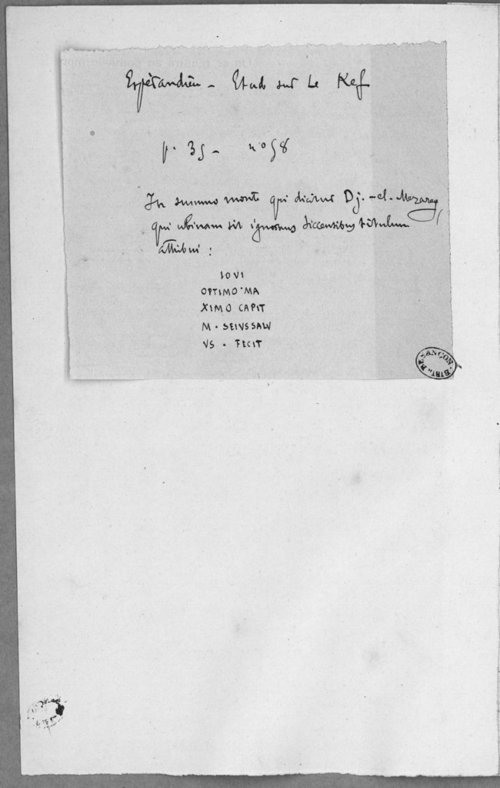 Espérandieu - Etude sur Le Kef
p. 35 - n° 58
In summo monte qui dicitur Dj. -el-
qui ubinam sit ignoramus dicentibus titulum
attribui :
IOVI
OPTIMO·MA
XIMO CAPIT
M · SEIVSSALV
VS · FECIT
BESANÇON
BIBL.